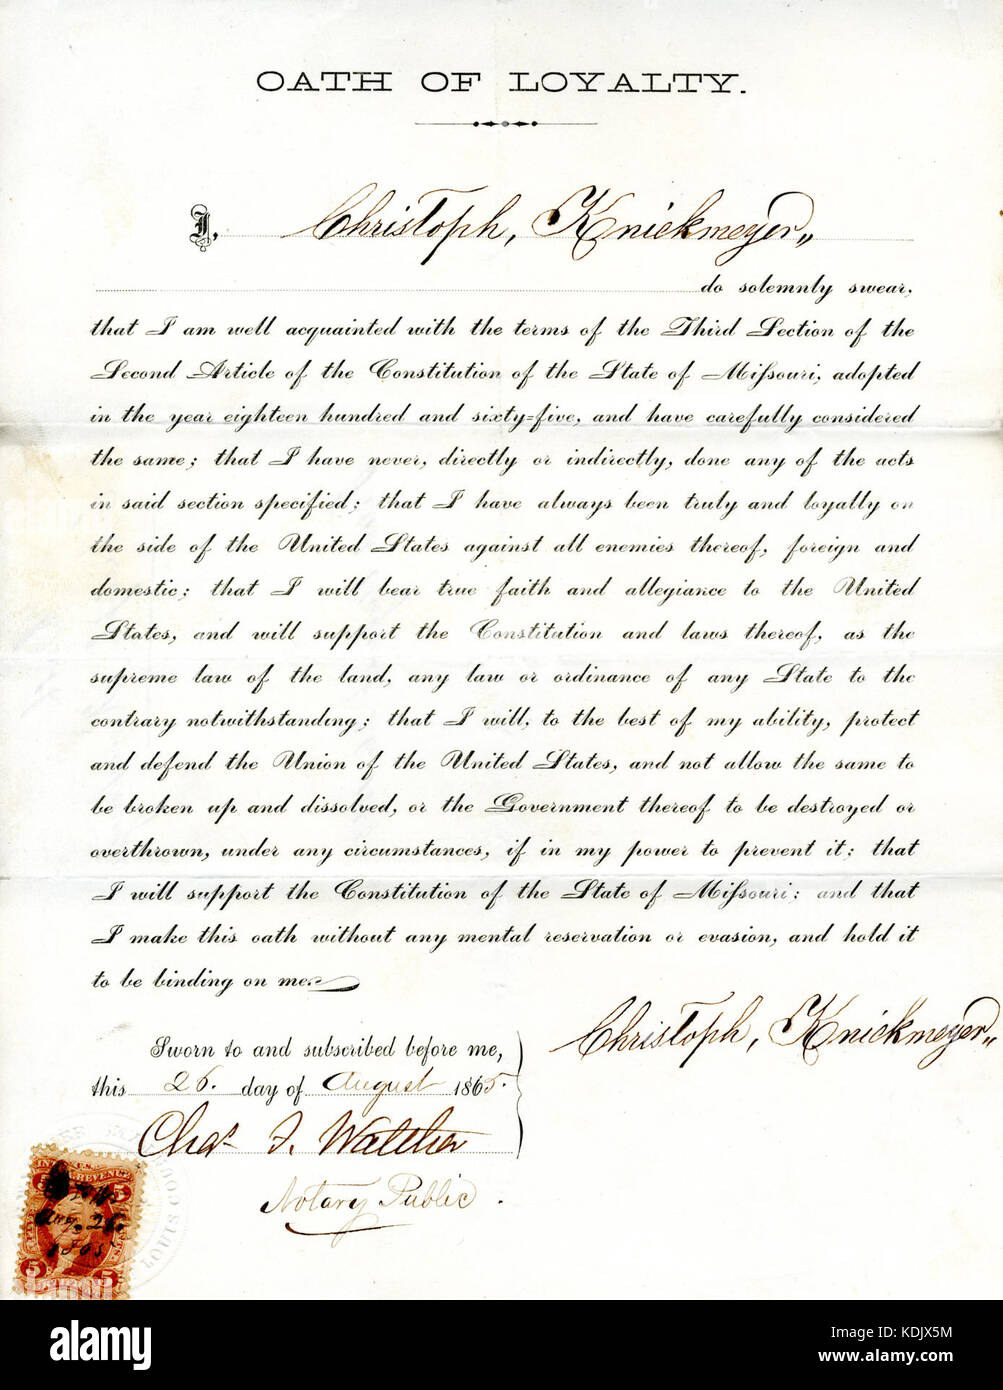 OATH OF LOYALTY.
I, Christoph, Knickmeyer,,
do solemnly swear,
that I am well acquainted with the terms of the Third Section of the
Second Article of the Constitution of the State of Miſsouri, adopted
in the year eighteen hundred and sixty=five, and have carefully considered
the same; that I have never, directly or indirectly, done any of the acts
in said section specified; that I have always been truly and loyally on
the side of the United States against all enemies thereof, foreign and
domestic; that I will bear true faith and allegiance to the United
States, and will support the Constitution and laws thereof, as the
supreme law of the land, any law or ordinance of any State to the
contrary notwithstanding; that I will, to the best of my ability, protect
and defend the Union of the United States, and not allow the same to
be broken up and dissolved, or the Government thereof to be destroyed or
overthrown, under any circumstances, if in my power to prevent it; that
I will support the Constitution of the State of Miſsouri; and that
I make this oath without any mental reservation or evasion, and hold it
to be binding on me.
Christoph, Knickmeyer,,
Sworn to and subscribed before me,
this 26. day of August 1865.
Chas F. Walther
Notary Public.
5 5
Aug. 26.
1865
5 5
LOUIS COUNTY
alamy
Image ID: KDJX5M
www.alamy.com